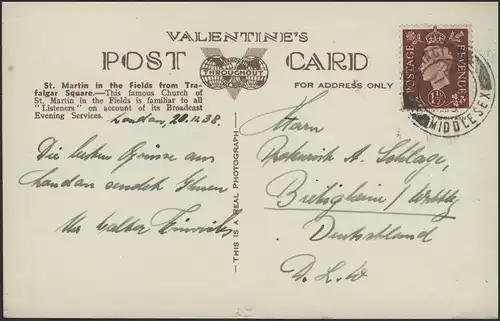 VALENTINE'S
POST CARD
THROUGHOUT
St. Martin in the Fields from Tra-
falgar Square.—This famous Church of
St. Martin in the Fields is familiar to all
"Listeners" on account of its Broadcast
Evening Services.
FOR ADDRESS ONLY
London, 20.11.38.
Die besten Grüsse aus
London sendet Ihnen
Ihr Walter
THIS IS A REAL PHOTOGRAPH
Herrn
A.
Bietigheim / Württbg
Deutschland
POSTAGE
REVENUE
1½D
MIDDLESEX